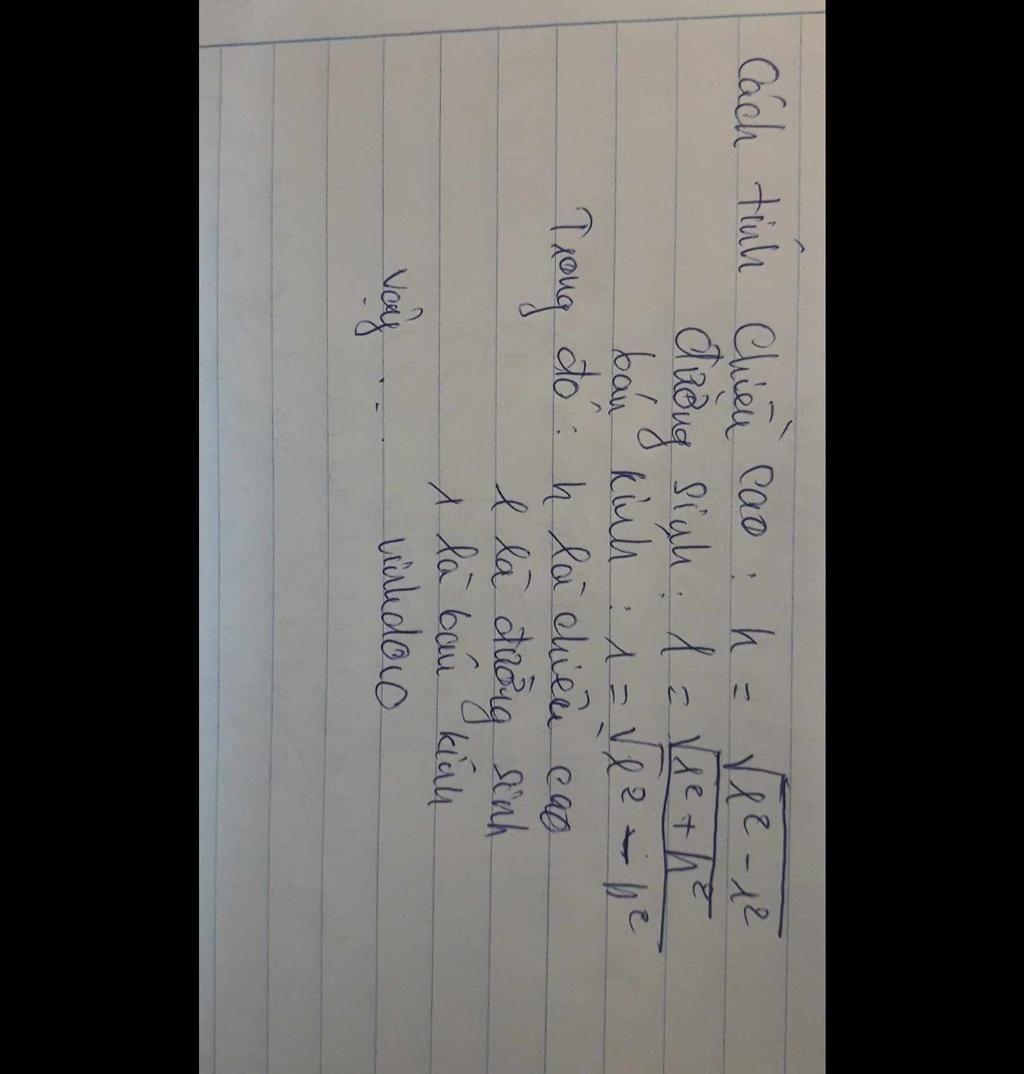 Cách tính chiều cao : h = √l² - r²
đường sinh : l = √r² + h²
bán kính : r = √l² - h²
Trong đó : h là chiều cao
l là đường sinh
r là bán kính
Vậy ...